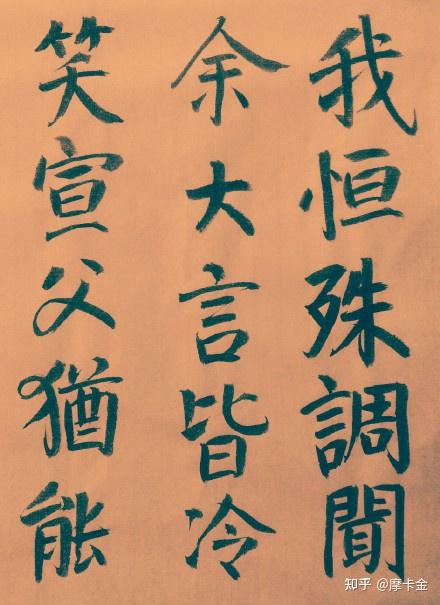 我恒殊調聞
余大言皆冷
笑宣父猶能
知乎 @摩卡金